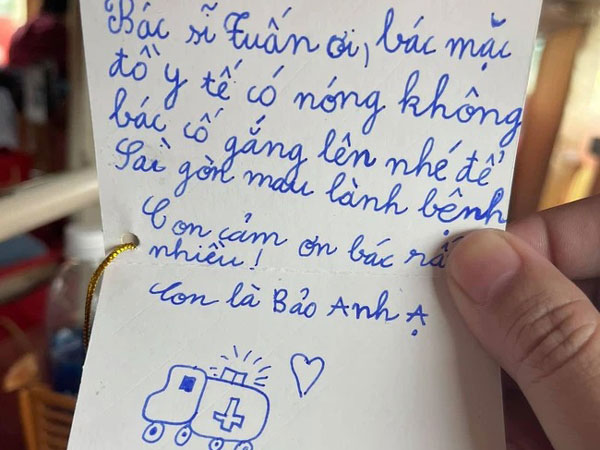 Bác sĩ Tuấn ơi, bác mặc
đồ y tế có nóng không
bác cố gắng lên nhé để
Sài gòn mau lành bệnh
Con cảm ơn bác rấ
nhiều!
Con là Bảo Anh Ạ